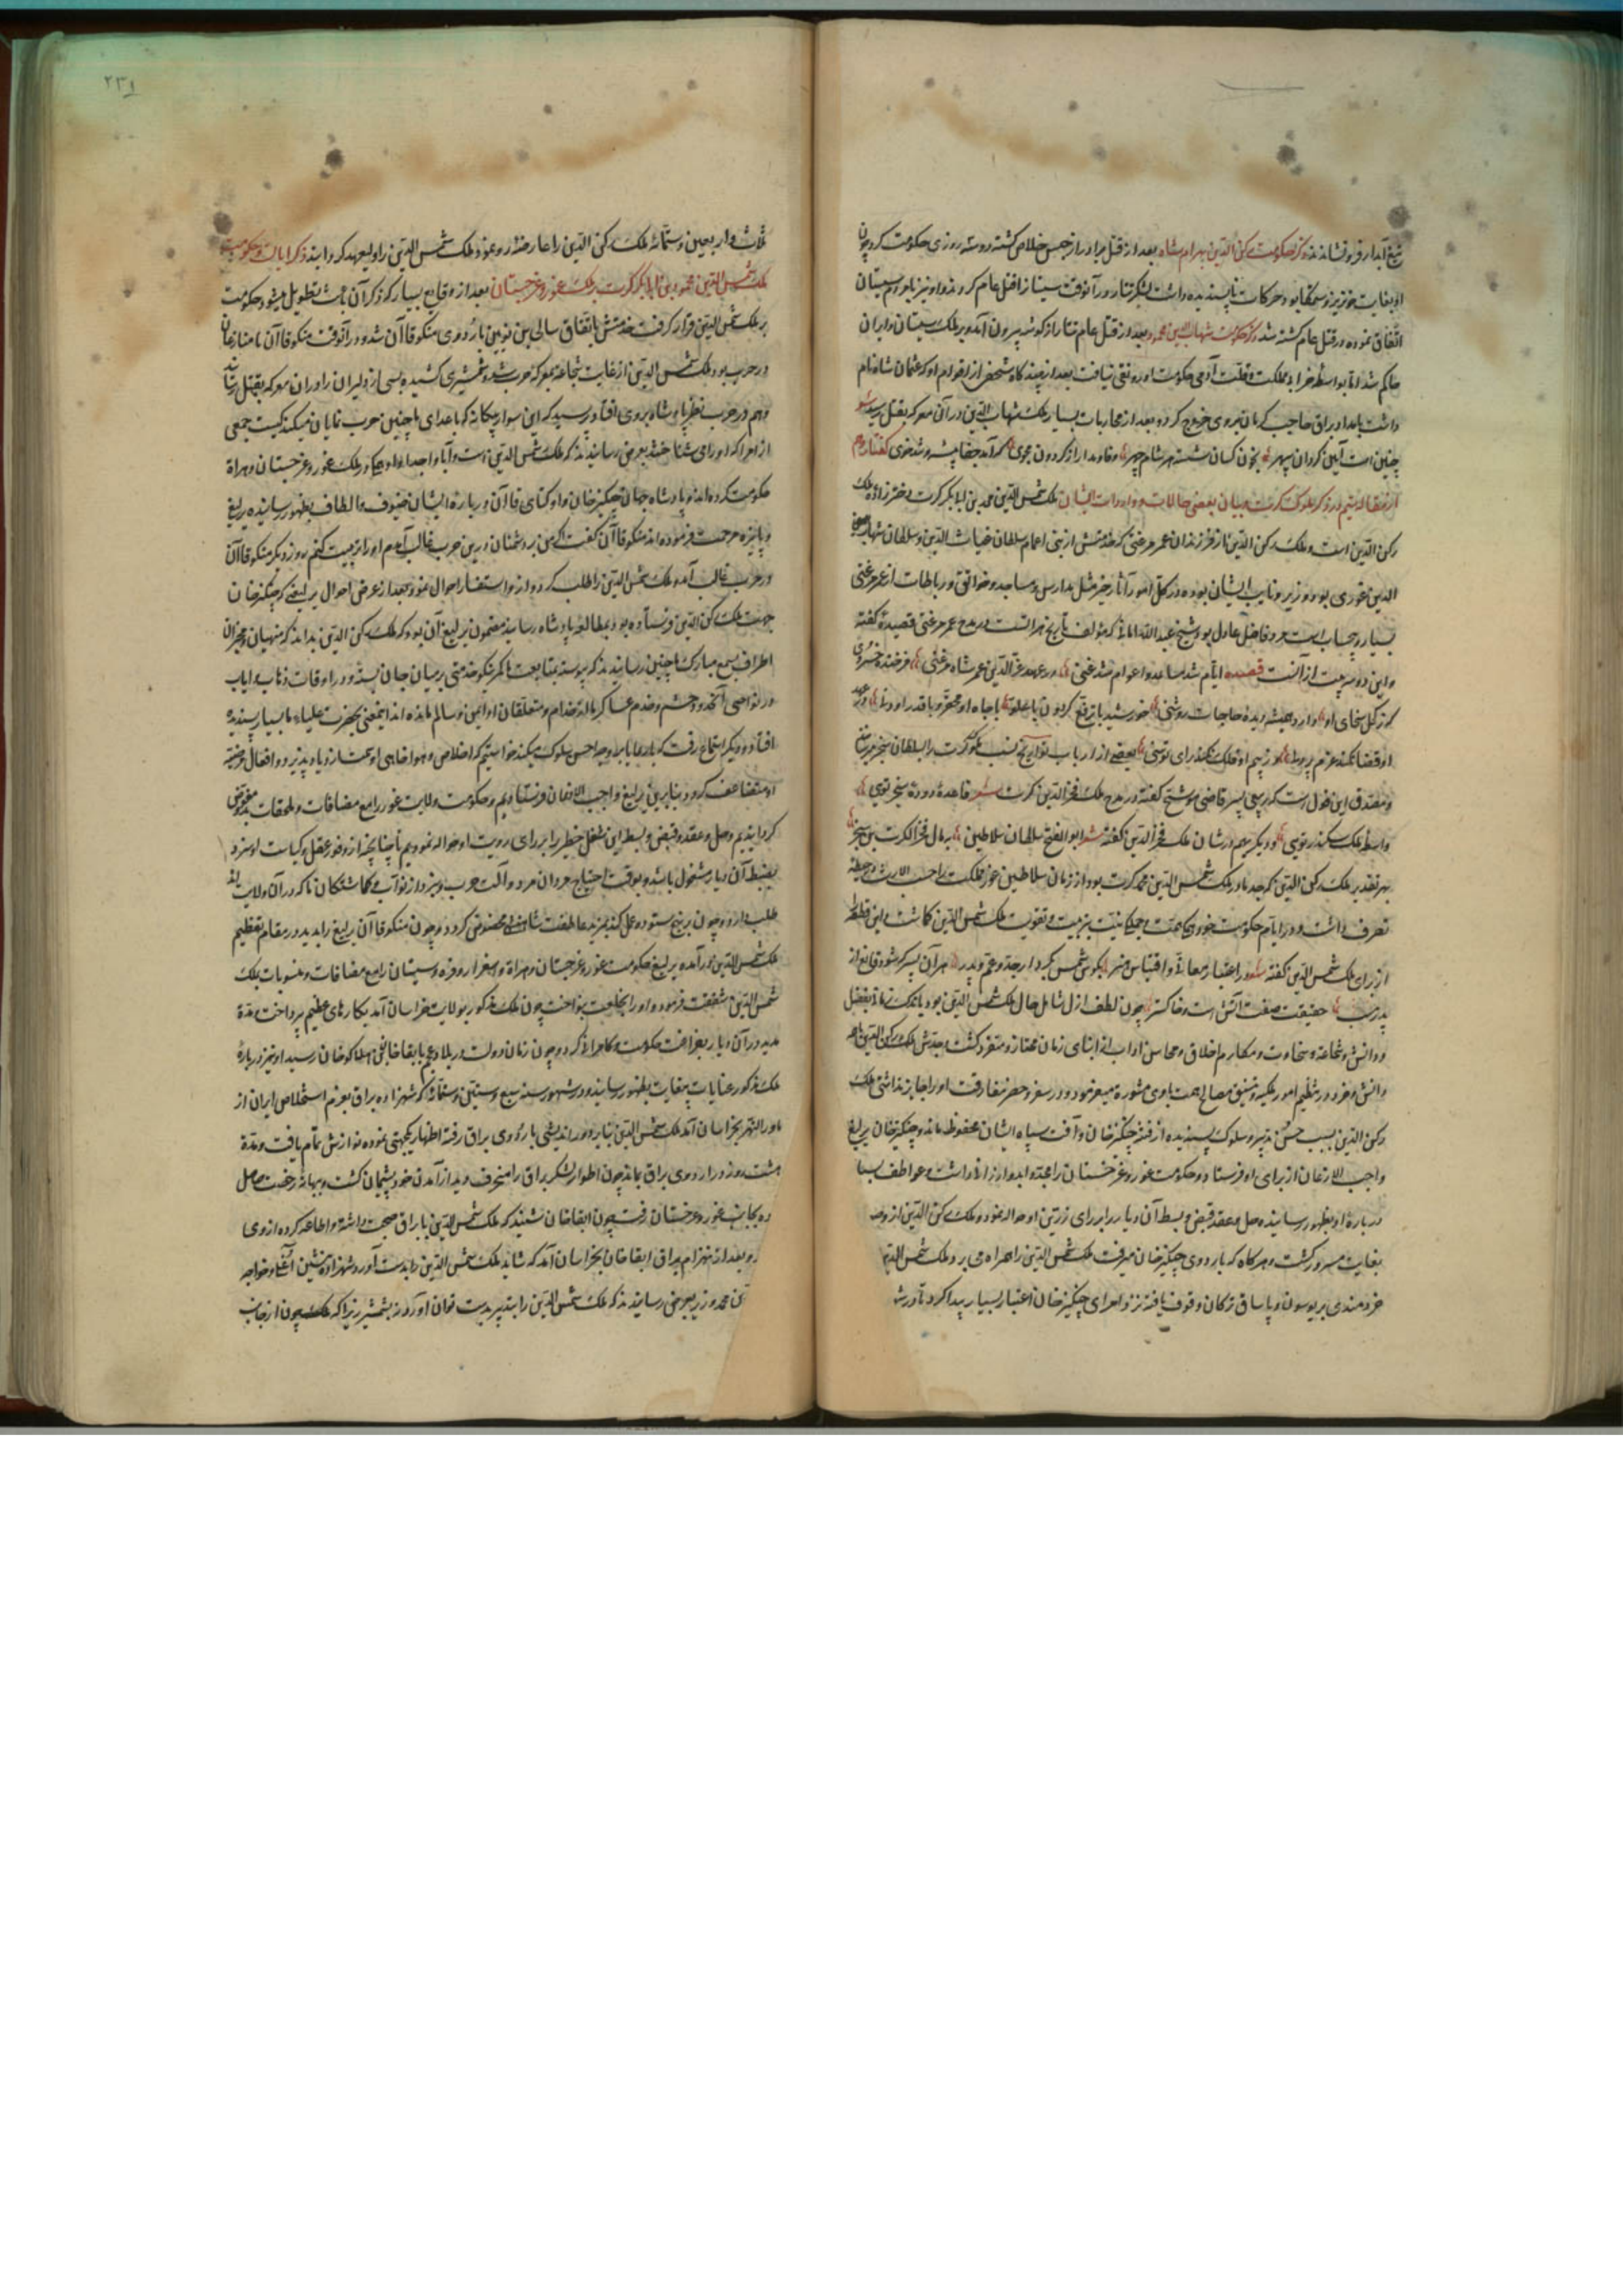 تیغ آبدار فرو نشاندند ذکر حکومت رکن الدین بهرام شاه بعد از قتل برادر از حبس خلاص کشته دو سه روزی حکومت کرد چون
او بغایت خونریز و سفاک بود و حرکات ناپسندیده داشت لشکر تتار در آنوقت سیستانرا قتل عام کردند و او نیز با مردم سیستان
اتفاق نموده در قتل عام کشته شد ذکر حکومت شهاب الدین محمود بعد از قتل عام تتار از کوشه بیرون آمد و بر ملک سیستان و ایران
حاکم شد اما بواسطه خرابی مملکت و قلت آدمی حکومت او رونقی نیافت بعد از چند کاه شخصی از اقوام او که عثمان شاه نام
داشت بامداد براق حاجب کرمان بروی خروج کرد و بعد از محاربات بسیار ملک شهاب الدین در آن معرکه بقتل رسید شعر
چنین است آیین کردان سپهر بخون کسان شسته هر شام چهر وفا و مدارا ز کردون مجوی که آمد جفا پیشه و تندخوی گفتار دوم
از مقاله ششم در ذکر ملوک کرت و بیان بعضی حالات و واردات ایشان ملک شمس الدین محمد بن ابابکر کرت دخترزاده ملک
رکن الدین است و ملک رکن الدین از فرزندان عمر مرغنی که خدمتش از بنی اعمام سلطان غیاث الدین و سلطان شهاب
الدین غوری بود و وزیر و نایب ایشان بوده در کل امور آثار خیر مثل مدارس و مساجد و خوانق و رباطات از عمر مرغنی
بسیار و بیحساب است مرد فاضل عادل بود و شیخ عبد الله امامی که مؤلف تاریخ هراتست در مدح عمر مرغنی قصیدهٔ کفته
و این دو بیت از آنست قصیده ایام شد مساعد و اعوام شد غنی در عهد عز الدین عمر شاه مرغنی فرخنده خسروی
که ز کحل سخای او دارد همیشه دیدهٔ حاجات روشنی خورشید با ترفع کردون با علو با جاه او محقر و با قدر او دنی
از قضا کمند عزم بر و ز بیم او فلک نکند رای توسنی بعضی از ارباب تواریخ نسب ملوک کرت را بسلطان سنجر میرسانند
و مصدق این قول است که ربیعی پسر قاضی فوشنج کفته در مدح ملک فخر الدین کرت شعر قاعدهٔ دودهٔ سنجر تویی
واسطهٔ ملک سکندر تویی و دیگری هم در شان ملک فخر الدین کفته شعر ابوالفتح سلطان سلاطین
بهر تقدیر ملک رکن الدین که جد مادر ملک شمس الدین محمد کرت بود از زمان سلاطین غور مملکت را حسب الارث در حیطه
تصرف داشت و در ایام حکومت خود همکی همت و جملکی نیت بتربیت و تقویت ملک شمس الدین کماشت و این قطعه
از زای ملک شمس الدین کفته شعر در اعتبار معانی و اقتباس هنر بکوش شمس بکردار جد و عم و پدر هر آن پسر که شود قانع از
پدر بنسب حقیقت صفت آتش است و خاکستر چون لطف ازل شامل حال ملک شمس الدین بود باندک زمانی بفضل
و دانش و شجاعت و سخاوت و مکارم اخلاق و محاسن اداب از ابنای زمان ممتاز و متفرد کشت و جدش ملک رکن الدین
دانش و خرد در تنظیم امور ملکیه و تنسیق مصالح همت با وی مشوره میفرمود و در سفر و حضر مفارقت او را جایز نداشتی ملک
رکن الدین بسبب حسن تدبیر و سلوک پسندیده از فتنهٔ چنکیزخان و آفت سپاه ایشان محفوظ ماند و چنکیزخان یرلیغ
واجب الاذعان از برای او فرستاد و حکومت غور و غرجستان را بدو ارزانی داشت و عواطف بسیا
دربارهٔ او بظهور رسانیده حل و عقد و قبض و بسط آن دیار را برای زرین او حواله نمود و ملک رکن الدین از وی
بغایت مسرور کشت و هرکاه که باردوی چنکیزخان میرفت ملک شمس الدین را همراه می برد و ملک شمس الدین
خردمندی بر یوسون و یاساق ترکان وقوف یافته نزد امرای چنکیزخان اعتبار بسیار پیدا کرد تا در شهور
ثلث و اربعین و ستمائه ملک رکن الدین را عارضه رو نمود و ملک شمس الدین را ولیعهد کردانید ذکر ایالت و حکومت
ملک شمس الدین محمد بن ابابکر کرت بر ملک غور و غرجستان بعد از وقایع بسیار که ذکر آن باعث تطویل میشود حکومت
بر ملک شمس الدین قرار کرفت خدمتش باتفاق سالی بن نویین باردوی منکوقاآن شد و در آنوقت منکوقاآن با منازعان
در حرب بود و ملک شمس الدین از غایت شجاعت بمعرکه حرب شد و شمشیر کشیده بسی از دلیران را در آن معرکه بقتل رساند
و هم در حرب نظر پادشاه بروی افتاد و پرسید که این سوار بیکانه که با عدای ما چنین حرب نمایان میکند کیست جمعی
از امرا که او را می شناختند بعرض رسانیدند که ملک شمس الدین است و آبا و اجداد او همکی در ملک غور و غرجستان و هراة
حکومت کرده اند و پادشاه جهان چنکیزخان و اوکتای قاآن دربارهٔ ایشان صنوف الطاف بظهور رسانیده یرلیغ
و پایزه مرحمت فرموده اند منکوقاآن کفت اگر من بر دشمنان درین حرب غالب آیم او را تربیت کنم روز دیگر منکوقاآن
در حرب غالب آمد و ملک شمس الدین را طلب کرد و ازو استفسار احوال نمود و بعد از عرض احوال یرلیغی که چنکیزخان
جهت ملک رکن الدین فرستاده بود بمطالعهٔ پادشاه رسانید مضمون یرلیغ آن بود که ملک رکن الدین بداند که منهیان و مخبران
اطراف بسمع مبارک ما چنین رسانیدند که پیوسته بمتابعت ما کمر نیکو خدمتی بر میان جان بسته و در اوقات ذهاب و ایاب
در نواحی آنحدود حشم و خدم عساکر ما از خدام و متعلقان او ایمن و سالم مانده اند اینمعنی بحضرت علیاء ما بسیار پسندیده
افتاد و دیگر استماع رفت که با رعایا بر وجه احسن سلوک میکند خواستیم که اخلاص و هواخواهی او سمت ازدیاد پذیرد و افعال مرضیه
او متضاعف کردد بنابرین یرلیغ واجب الاذعان فرستادیم و حکومت ولایت غور را مع مضافات و ملحقات بدو مفوض
کردانیدیم و حل و عقد و قبض و بسط این شغل خطیر را برای رویت او حواله نمودیم تا چنانچه از وفور عقل و کیاست او سزد
بضبط آن دیار مشغول باشد و بوقت احتیاج مردان مرد و آلت حرب و نبرد از نواب و کماشتکان ما که در آن ولایت اند
طلب دارد و چون برینج ستوده عمل کند بمزید عاطفت شاهنشاهی مخصوص کردد و چون منکوقاآن یرلیغ را بدید در مقام تعظیم
ملک شمس الدین درآمده یرلیغ حکومت غور و غرجستان و هراة و اسفزار و فره و سیستان را مع مضافات و منسوبات بملک
شمس الدین شفقت فرمود و او را بخلعت بنواخت چون ملک مذکور بولایت خراسان آمد بکارهای عظیم پرداخت و مدة
مدید در آن دیار بفراغت حکومت و کامرانی کرد و چون زمان دولت در بلاد عجم بابقاخان بن هلاکوخان رسید او نیز دربارهٔ
ملک مذکور عنایات بیغایت بظهور رسانید و در شهور سنه سبع و ستین و ستمائه که شهزاده براق بعزم استخلاص ایران از
ماورالنهر بخراسان آمد ملک شمس الدین بنابر دوراندیشی باردوی براق رفته اظهار یکجهتی نموده نوازش تمام یافت و مدة
هشت روز در اردوی براق بماند چون اطوار لشکر براق را منحرف دید از آمدن خود پشیمان کشت و ببهانه رخصت حاصل
ده بجانب غور و غرجستان رفت چون ابقاخان شنید که ملک شمس الدین با براق صحبت داشته و اطاعه کرده از وی
د و بعد از انهزام براق ابقاخان بخراسان آمد که شاید ملک شمس الدین را بدست آورد شهزاده تبشین آغا و خواجه
محمد وزیر بعرض رسانیدند که ملک شمس الدین را بتدبیر بدست توان آورد نه بشمشیر زیرا که ملک چون از جانب